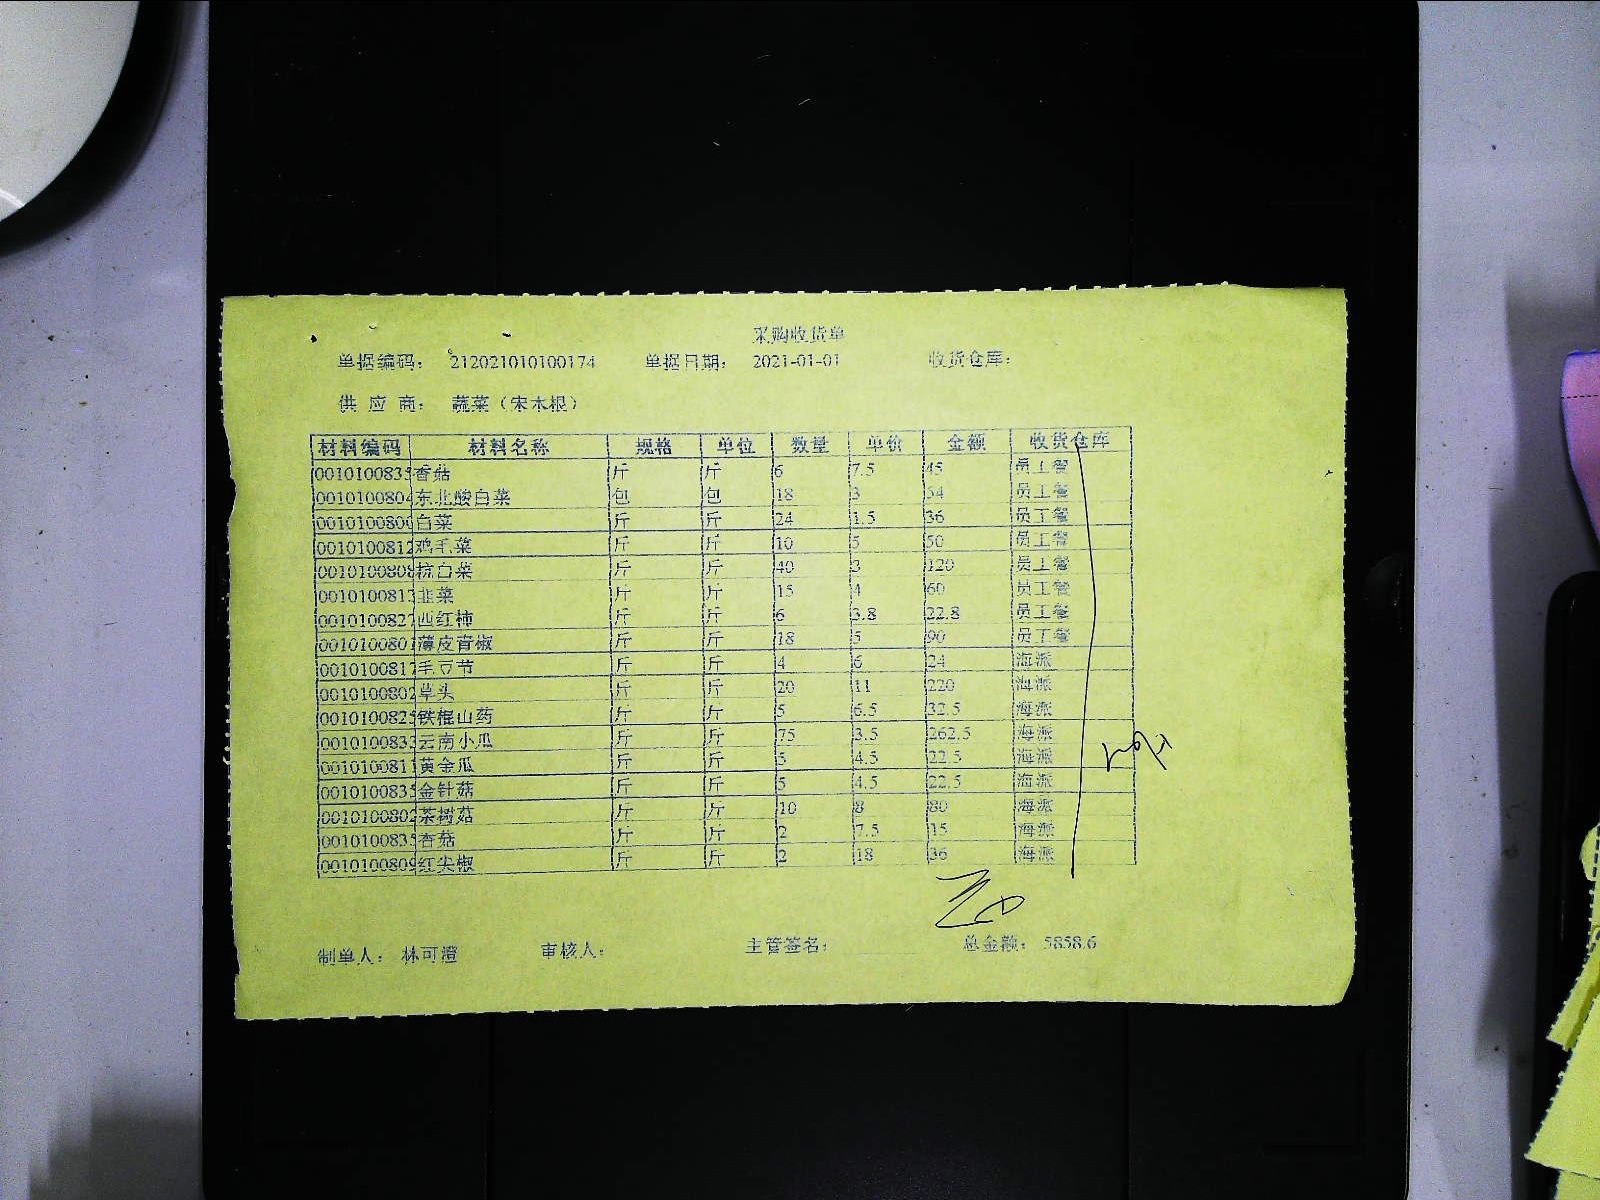 采购收货单
单据编码： 212021010100174 单据日期： 2021-01-01 收货仓库：
供 应 商： 蔬菜（宋本根）
材料编码 材料名称 规格 单位 数量 单价 金额 收货仓库
001010083 香菇 斤 斤 6 7.5 45 员工餐
001010080 东北酸白菜 包 包 18 3 54 员工餐
001010080 白菜 斤 斤 24 1.5 36 员工餐
0010100812 鸡毛菜 斤 斤 10 5 50 员工餐
001010080 杭白菜 斤 斤 40 3 120 员工餐
001010081 韭菜 斤 斤 15 4 60 员工餐
001010082 西红柿 斤 斤 6 3.8 22.8 员工餐
001010080 薄皮青椒 斤 斤 18 5 90 员工餐
001010081 毛豆节 斤 斤 4 6 24 海派
0010100802 草头 斤 斤 20 11 220 海派
001010082 铁棍山药 斤 斤 5 6.5 32.5 海派
001010083 云南小瓜 斤 斤 75 3.5 262.5 海派
001010081 黄金瓜 斤 斤 5 4.5 22.5 海派
001010083 金针菇 斤 斤 5 4.5 22.5 海派
0010100802 茶树菇 斤 斤 10 8 80 海派
001010083 香菇 斤 斤 2 7.5 15 海派
001010080 红尖椒 斤 斤 2 18 36 海派
制单人： 林可澄 审核人： 主管签名： 总金额： 5858.6